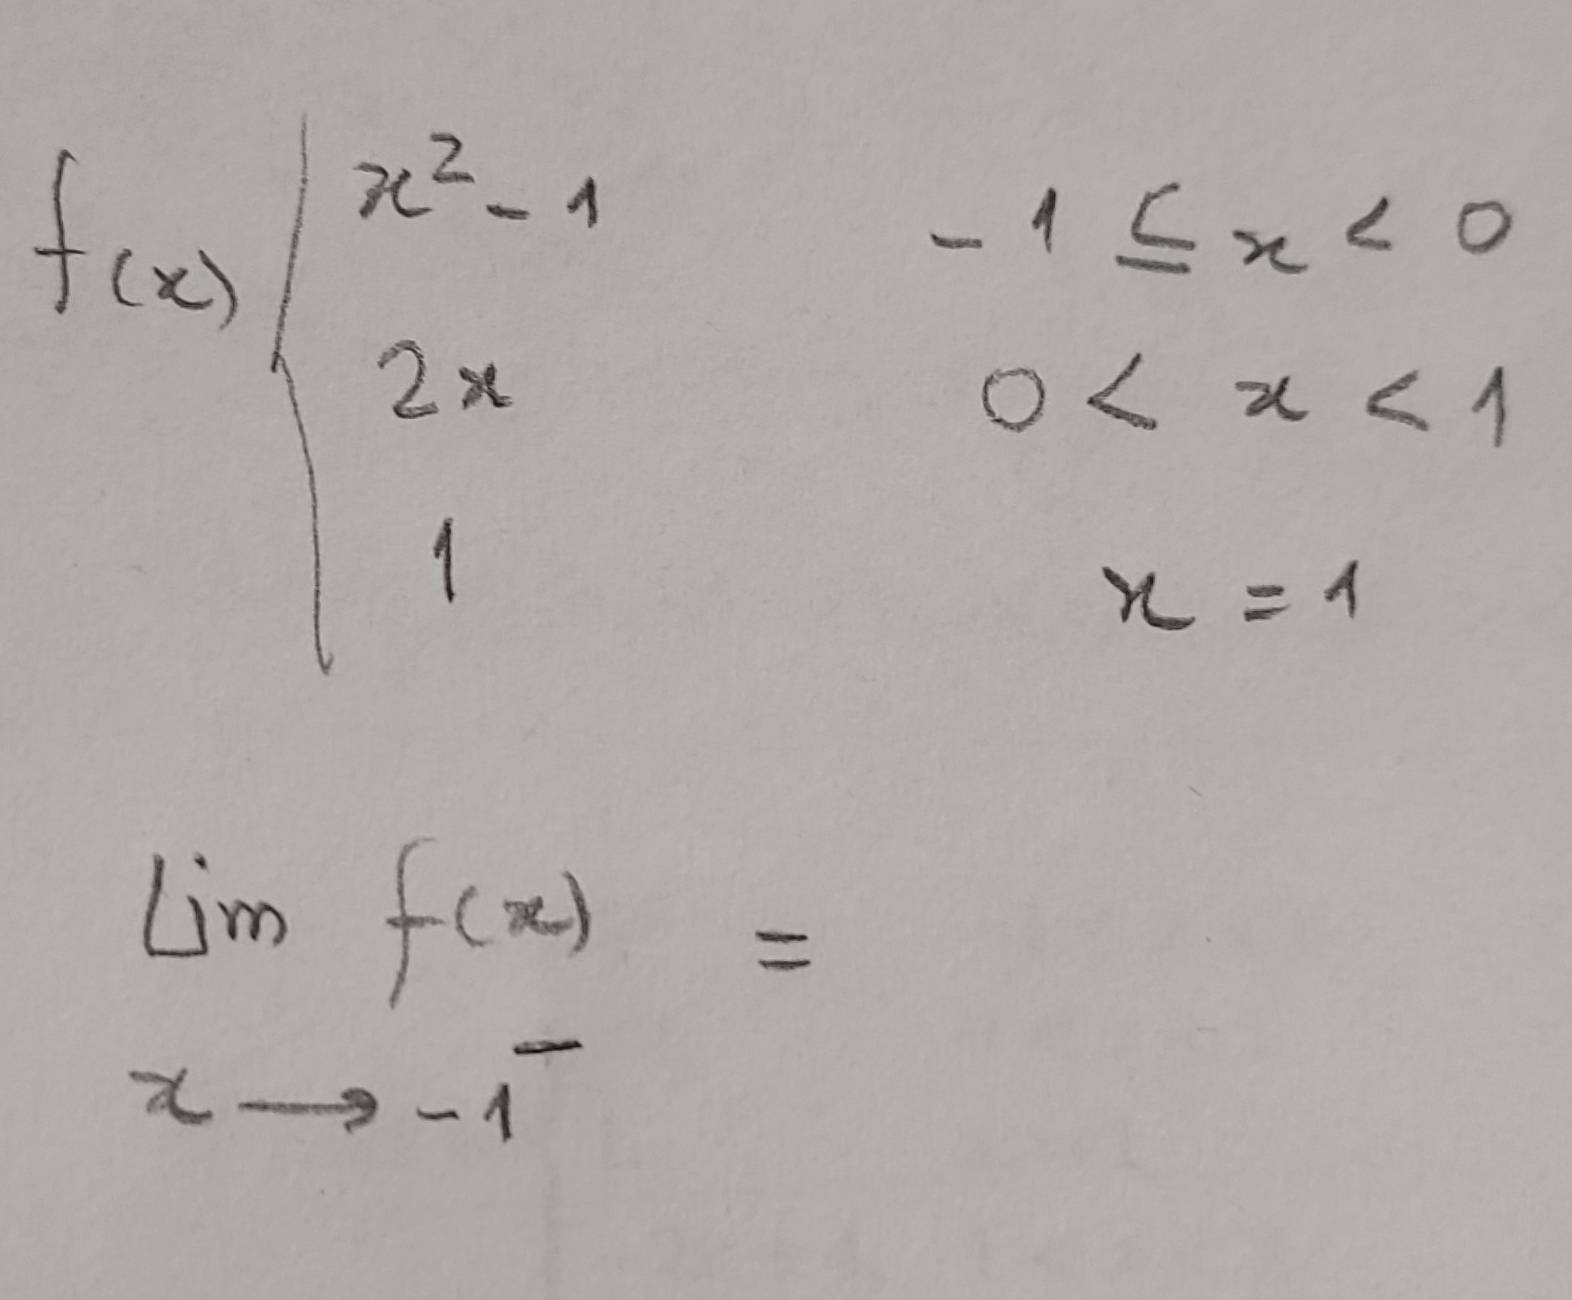 f(x) { x² - 1    -1 ≤ x < 0
2x    0 < x < 1
1    x = 1
Lim f(x) =
x → -1⁻